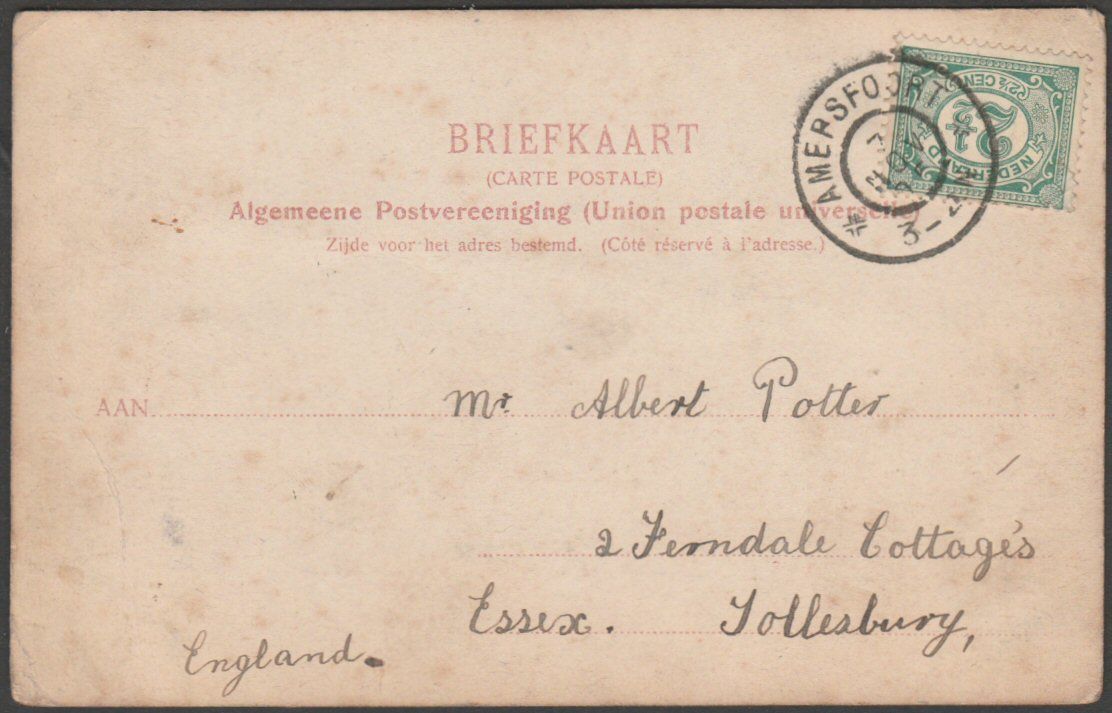 BRIEFKAART
(CARTE POSTALE)
Algemeene Postvereeniging (Union postale universelle)
Zijde voor het adres bestemd. (Côté réservé à l'adresse.)
AMERSFOORT
3-
2½ CEN
2½
NEDERLAND
AAN
Mr. Albert Potter
2 Ferndale Cottagés
Essex. Tollesbury,
England.